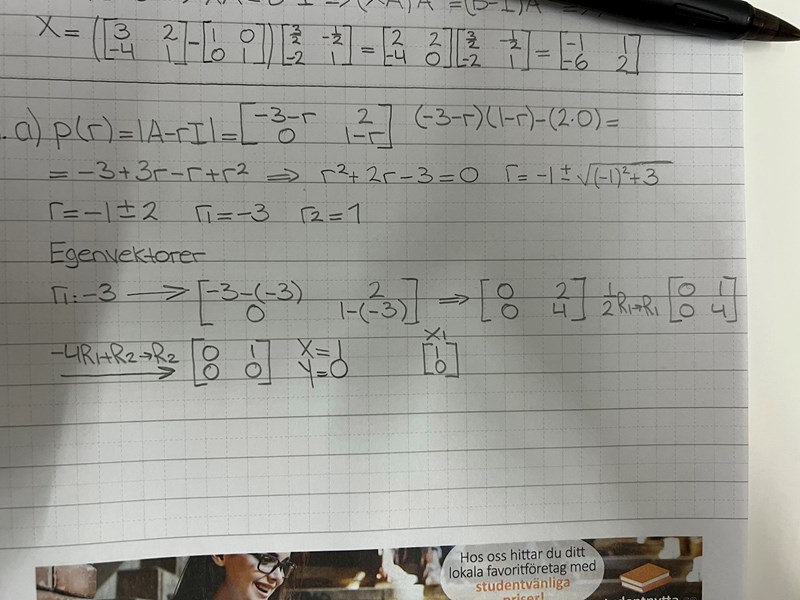 X = ([3 2; -4 1] - [1 0; 0 1]) [3/2 -1/2; -2 1] = [2 2; -4 0] [3/2 -1/2; -2 1] = [-1 1; -6 2]
. a) p(r) = |A-rI| = [-3-r 2; 0 1-r] (-3-r)(1-r)-(2·0) =
= -3+3r-r+r² ⇒ r²+2r-3=0 r=-1±√(-1)²+3
r=-1±2 r1=-3 r2=1
Egenvektorer
r1:-3 → [-3-(-3) 2; 0 1-(-3)] ⇒ [0 2; 0 4] 1/2R1→R1 [0 1; 0 4]
-4R1+R2→R2 [0 1; 0 0] X=1 Y=0 X1 [1; 0]
Hos oss hittar du ditt
lokala favoritföretag med
studentvänliga
priser!